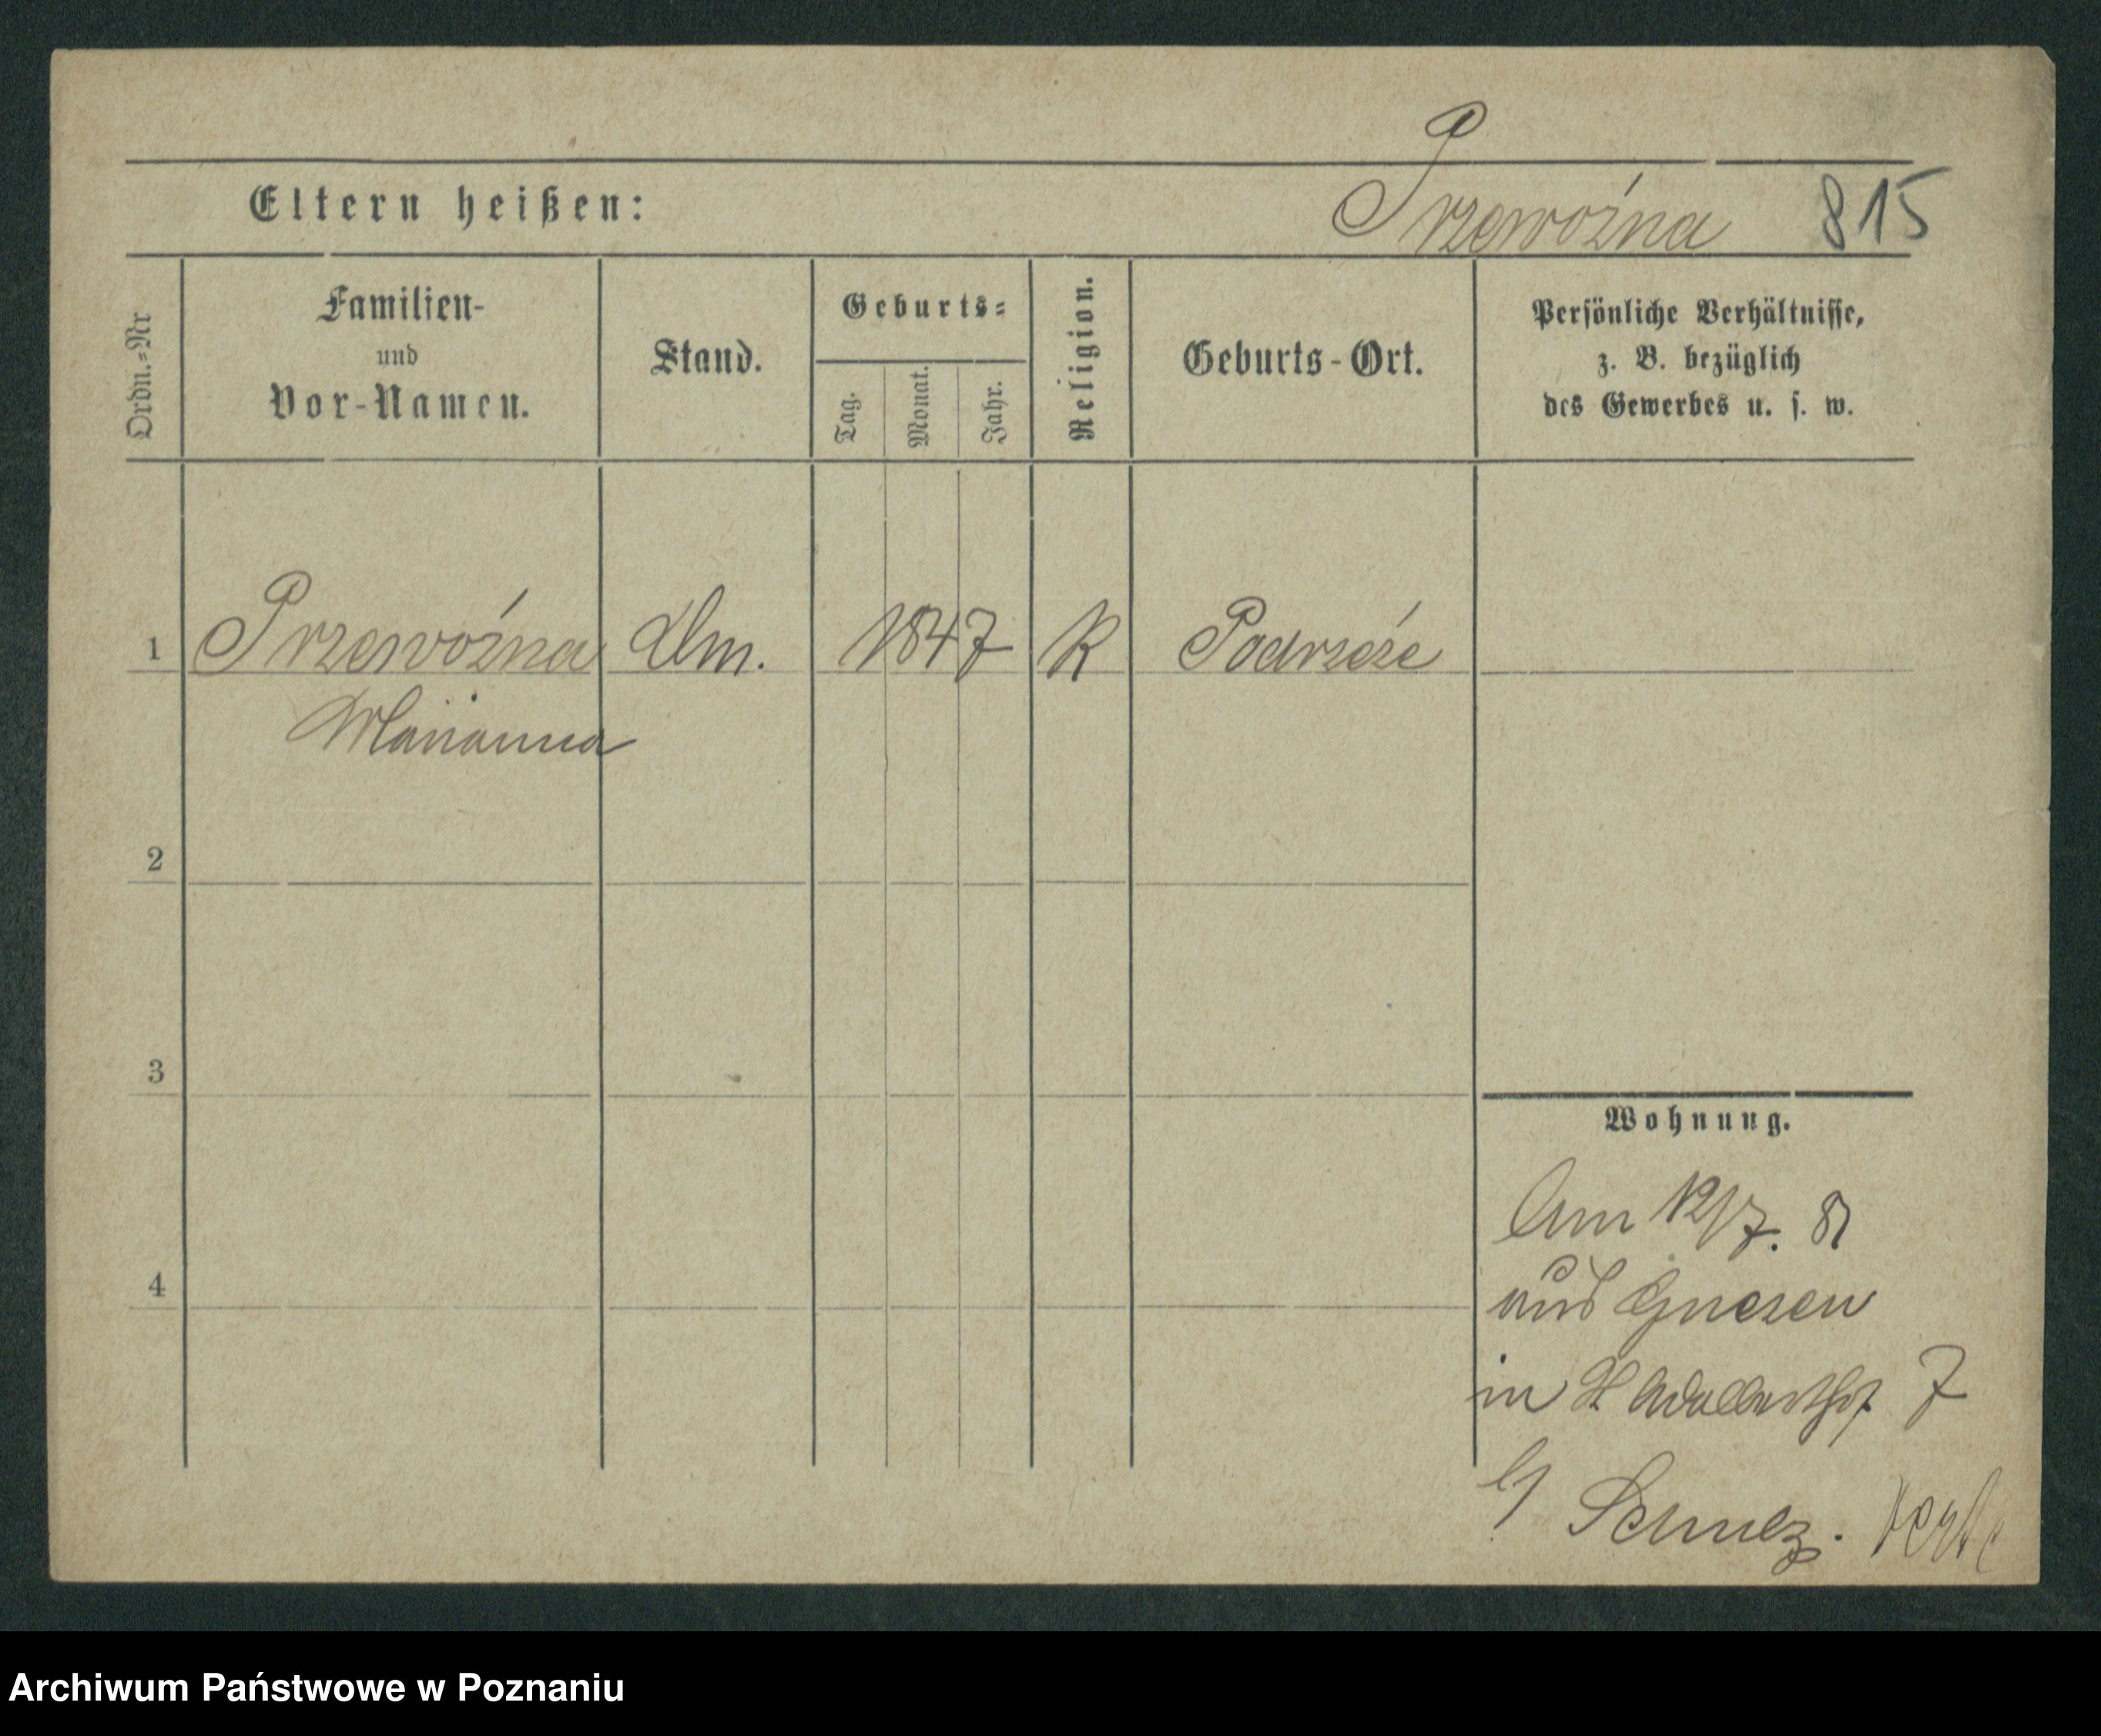 P
Eltern heißen: Przewoźna 815
Ordn.-Nr
Familien-
und
Vor-Namen.
Stand.
Geburts-
Tag.
Monat.
Jahr.
Religion.
Geburts-Ort.
Persönliche Verhältnisse,
z. B. bezüglich
des Gewerbes u. s. w.
1 Przewoźna 1847 K Podrzeże
Marianna
2
3
Wohnung.
Am 12/7. 81
aus Gnesen
4
in 7
b/ Schulz.
Archiwum Państwowe w Poznaniu